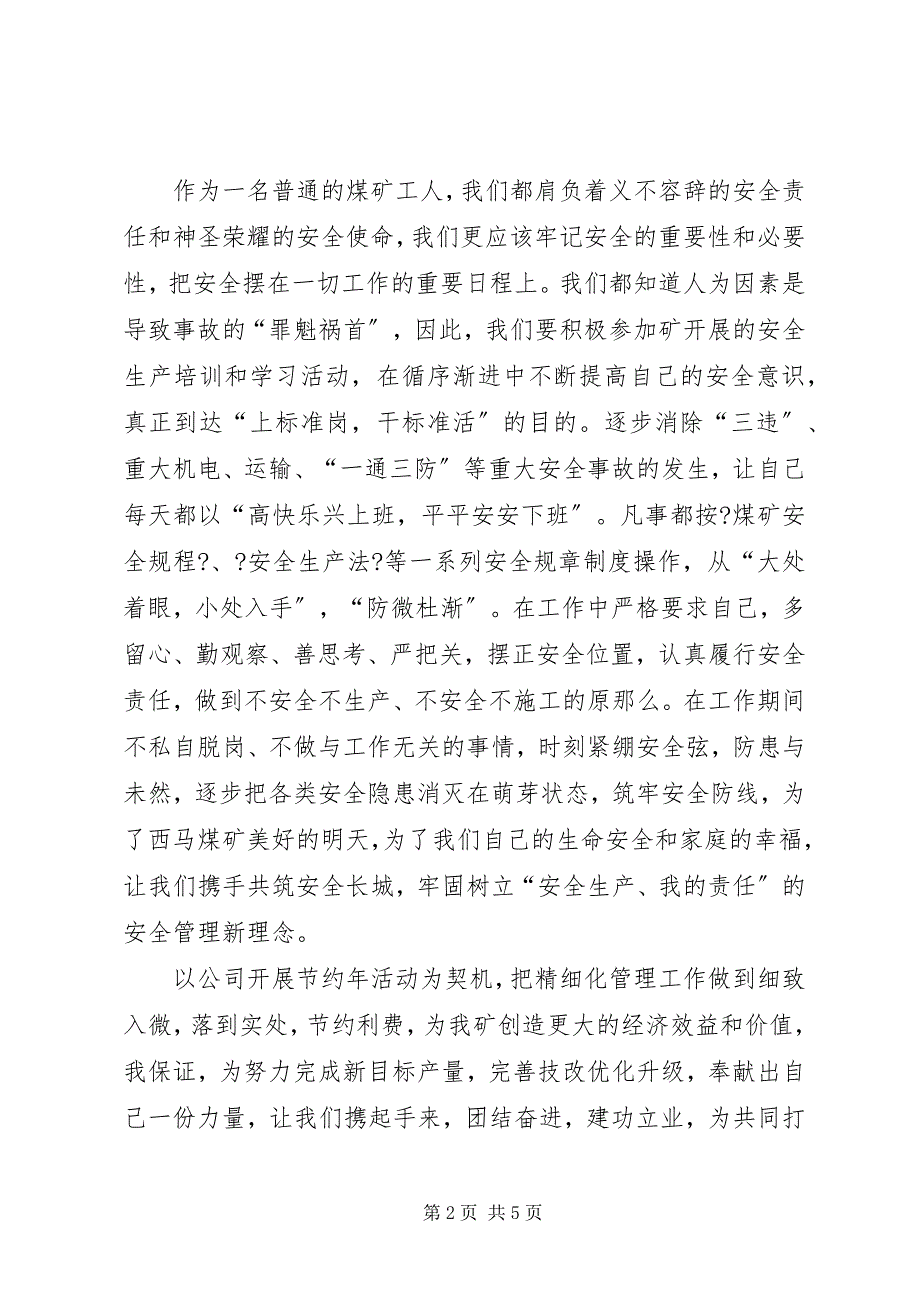 作为一名普通的煤矿工人，我们都肩负着义不容辞的安全责
任和神圣荣耀的安全使命，我们更应该牢记安全的重要性和必要
性，把安全摆在一切工作的重要日程上。我们都知道人为因素是
导致事故的“罪魁祸首〞，因此，我们要积极参加矿开展的安全
生产培训和学习活动，在循序渐进中不断提高自己的安全意识，
真正到达“上标准岗，干标准活〞的目的。逐步消除“三违〞、
重大机电、运输、“一通三防〞等重大安全事故的发生，让自己
每天都以“高快乐兴上班，平平安安下班〞。凡事都按?煤矿安
全规程?、?安全生产法?等一系列安全规章制度操作，从“大处
着眼，小处入手〞，“防微杜渐〞。在工作中严格要求自己，多
留心、勤观察、善思考、严把关，摆正安全位置，认真履行安全
责任，做到不安全不生产、不安全不施工的原那么。在工作期间
不私自脱岗、不做与工作无关的事情，时刻紧绷安全弦，防患与
未然，逐步把各类安全隐患消灭在萌芽状态，筑牢安全防线，为
了西马煤矿美好的明天，为了我们自己的生命安全和家庭的幸福，
让我们携手共筑安全长城，牢固树立“安全生产、我的责任〞的
安全管理新理念。
以公司开展节约年活动为契机，把精细化管理工作做到细致
入微，落到实处，节约利费，为我矿创造更大的经济效益和价值，
我保证，为努力完成新目标产量，完善技改优化升级，奉献出自
己一份力量，让我们携起手来，团结奋进，建功立业，为共同打
第 2 页 共 5 页